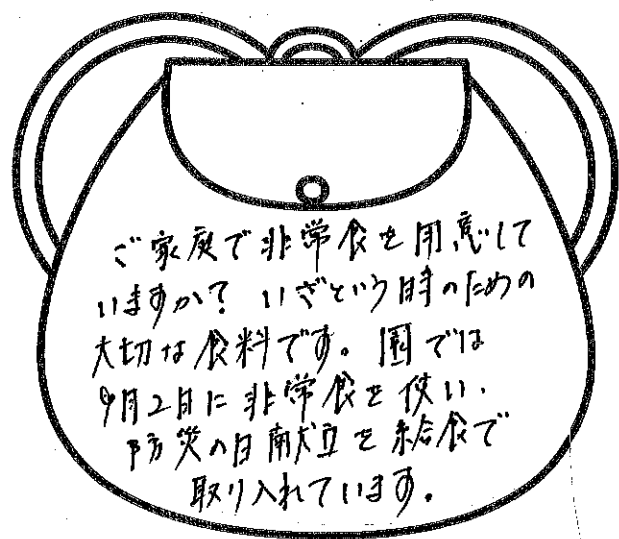 ご家庭で非常食を用意して
いますか？ いざという時のための
大切な食料です。園では
9月2日に非常食を使い、
防災の日献立を給食で
取り入れています。